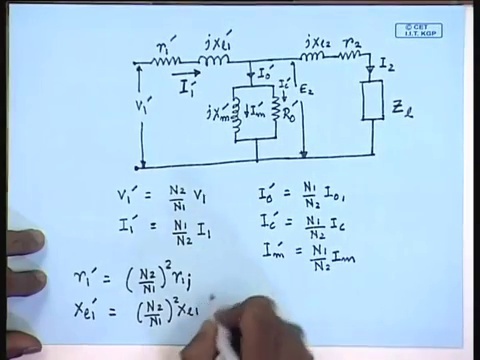 © CET
I.I.T. KGP
r₁' jxₑ₁' jxₑ₂ r₂
I₁' I₀' I₂
V₁' jx'ₘ I'ₘ I꜀' R₀' E₂ Zₗ
V₁' = N₂/N₁ V₁ I₀' = N₁/N₂ I₀,
I₁' = N₁/N₂ I₁ I꜀' = N₁/N₂ I꜀
Iₘ' = N₁/N₂ Iₘ
r₁' = (N₂/N₁)² r₁;
xₑ₁' = (N₂/N₁)² xₑ₁